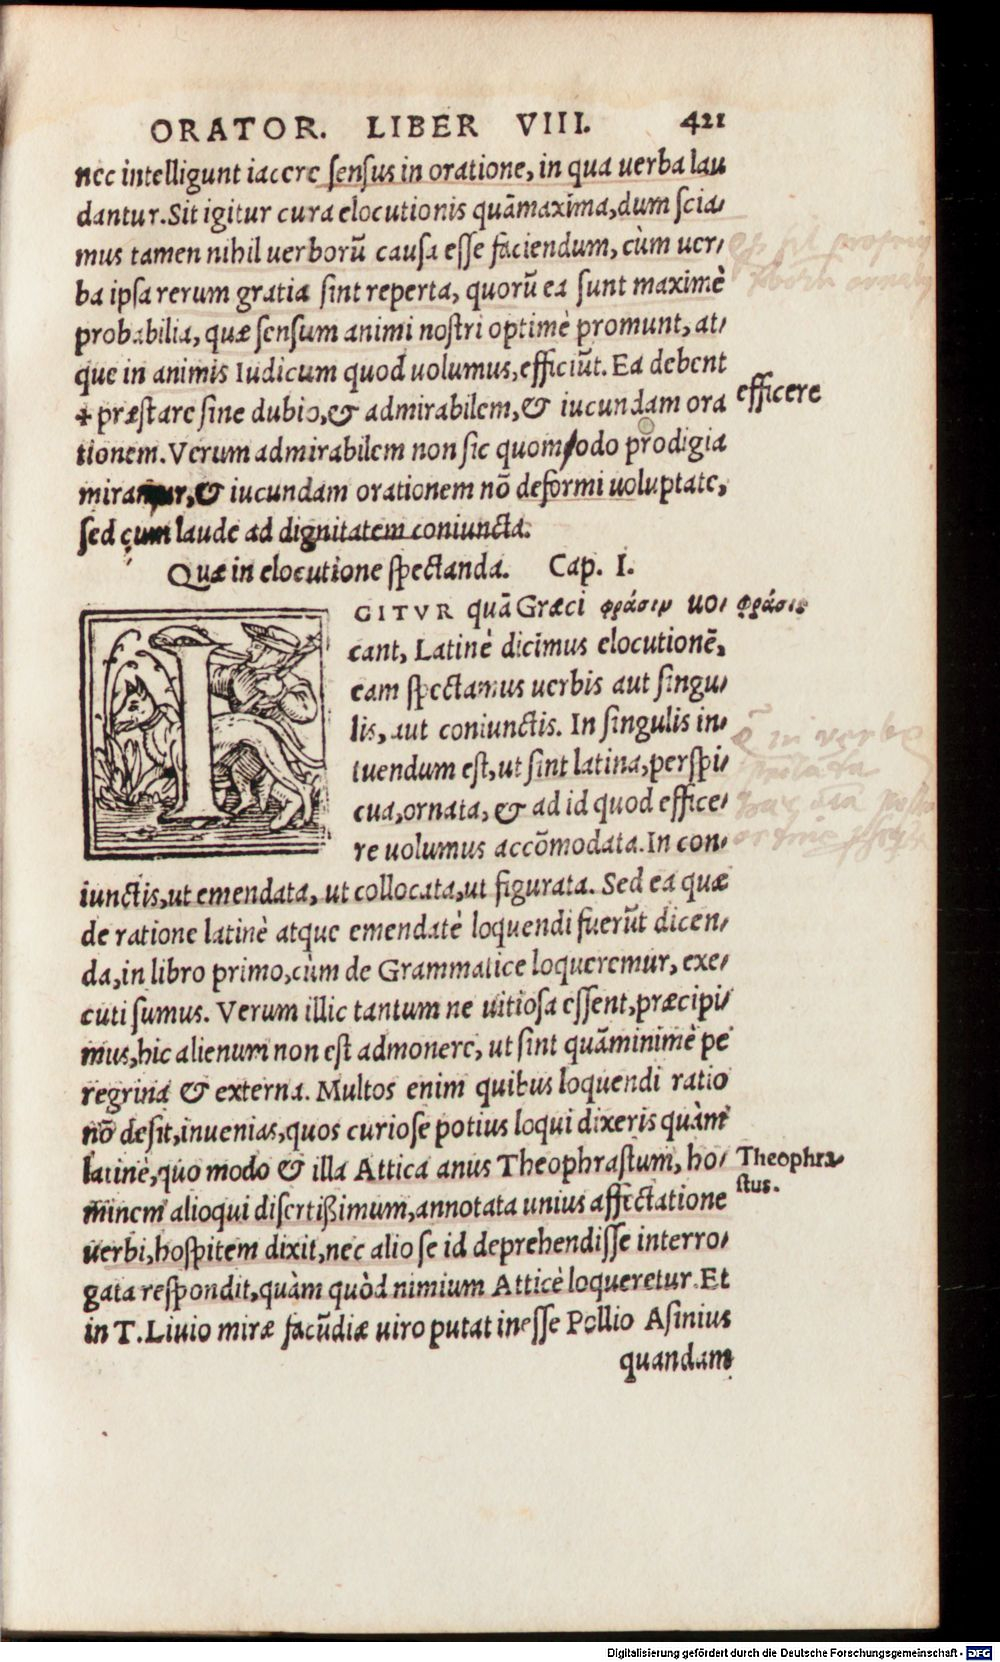 ORATOR. LIBER VIII. 421
nec intelligunt iacere sensus in oratione, in qua uerba lau
dantur. Sit igitur cura elocutionis quãmaxima, dum scia-
mus tamen nihil uerborũ causa esse faciendum, cùm uer-
ba ipsa rerum gratia sint reperta, quorũ ea sunt maximè
probabilia, quæ sensum animi nostri optimè promunt, at-
que in animis Iudicum quod uolumus, efficiũt. Ea debent
efficere
+ præstare sine dubio, & admirabilem, & iucundam ora
tionem. Verum admirabilem non sic quomodo prodigia
miramur, & iucundam orationem nõ deformi uoluptate,
sed cum laude ad dignitatem coniuncta.
Quæ in elocutione spectanda. Cap. I.
IGITVR quã Græci φράσιν uo-
φράσις
cant, Latinè dicimus elocutionẽ,
eam spectamus uerbis aut singu-
lis, aut coniunctis. In singulis in-
tuendum est, ut sint latina, perspi-
cua, ornata, & ad id quod effice-
re uolumus accõmodata. In con-
iunctis, ut emendata, ut collocata, ut figurata. Sed ea quæ
de ratione latinè atque emendatè loquendi fuerũt dicen-
da, in libro primo, cùm de Grammatice loqueremur, exe-
cuti sumus. Verum illic tantum ne uitiosa essent, præcipi-
mus, hic alienum non est admonere, ut sint quãminimè pe
regrina & externa. Multos enim quibus loquendi ratio
nõ desit, inuenias, quos curiose potius loqui dixeris quàm
latinè, quo modo & illa Attica anus Theophrastum, ho-
Theophra-
stus.
minem alioqui disertißimum, annotata unius affectatione
uerbi, hospitem dixit, nec alio se id deprehendisse interro-
gata respondit, quàm quòd nimium Atticè loqueretur. Et
in T. Liuio miræ facũdiæ uiro putat inesse Pollio Asinius
quandam
Digitalisierung gefördert durch die Deutsche Forschungsgemeinschaft - DFG